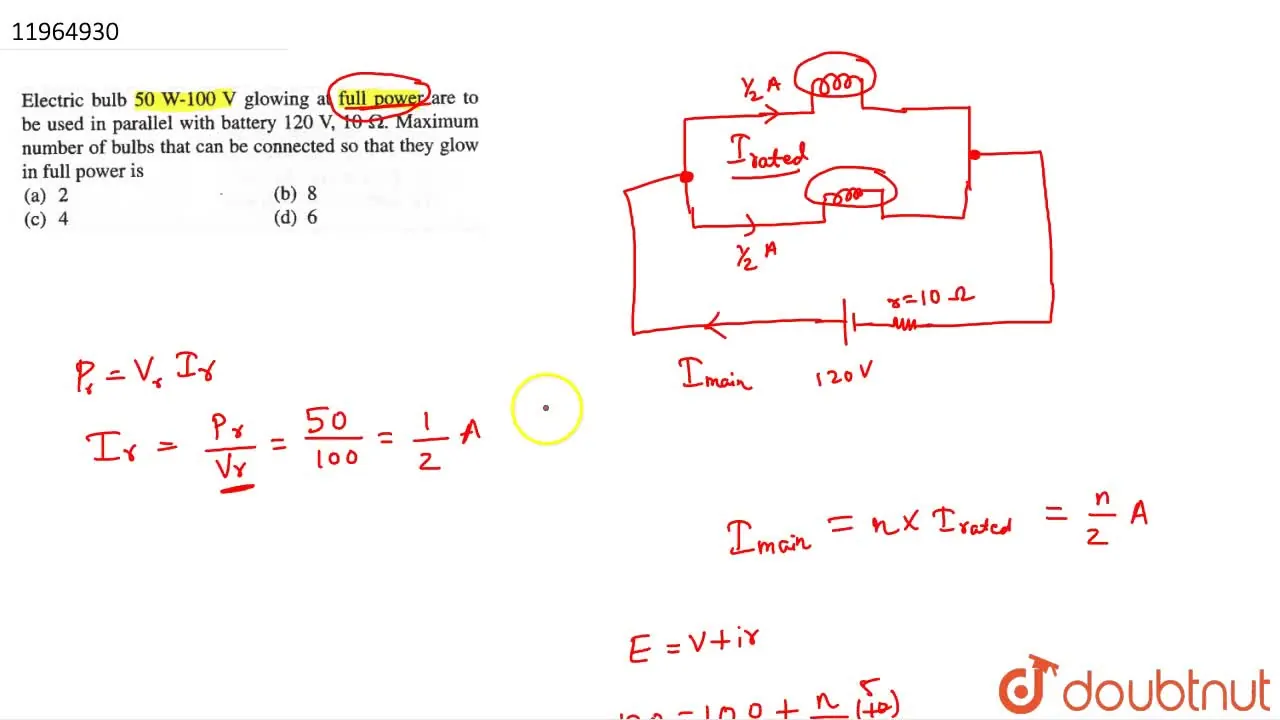 11964930
Electric bulb 50 W-100 V glowing at full power are to
be used in parallel with battery 120 V, 10 Ω. Maximum
number of bulbs that can be connected so that they glow
in full power is
(a) 2 (b) 8
(c) 4 (d) 6
½ A
I rated
½ A
r=10 Ω
I main 120V
Pr = Vr Ir
Ir = Pr/Vr = 50/100 = 1/2 A
I main = n × I rated = n/2 A
E = V+ir
120 = 100 + n (10) 5
doubtnut